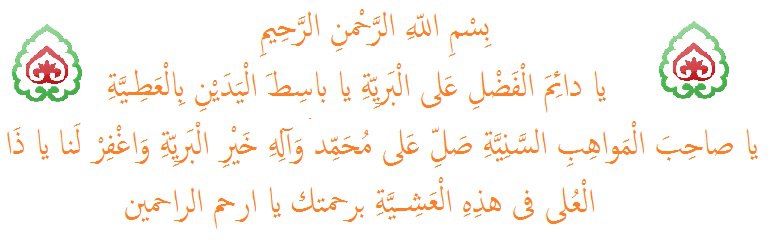 بِسْمِ اللّهِ الرَّحْمنِ الرَّحِيمِ
يا دائِمَ الْفَضْلِ عَلى الْبَرِيِّةِ يا باسِطَ الْيَدَيْنِ بِالْعَطِيَّةِ
يا صاحِبَ الْمَواهِبِ السَّنِيَّةِ صَلِّ عَلى مُحَمِّد وَآلِهِ خَيْرِ الْبَرِيِّةِ وَاغْفِرْ لَنا يا ذَا
الْعُلى فى هذِهِ الْعَشِيَّةِ برحمتك يا ارحم الراحمين